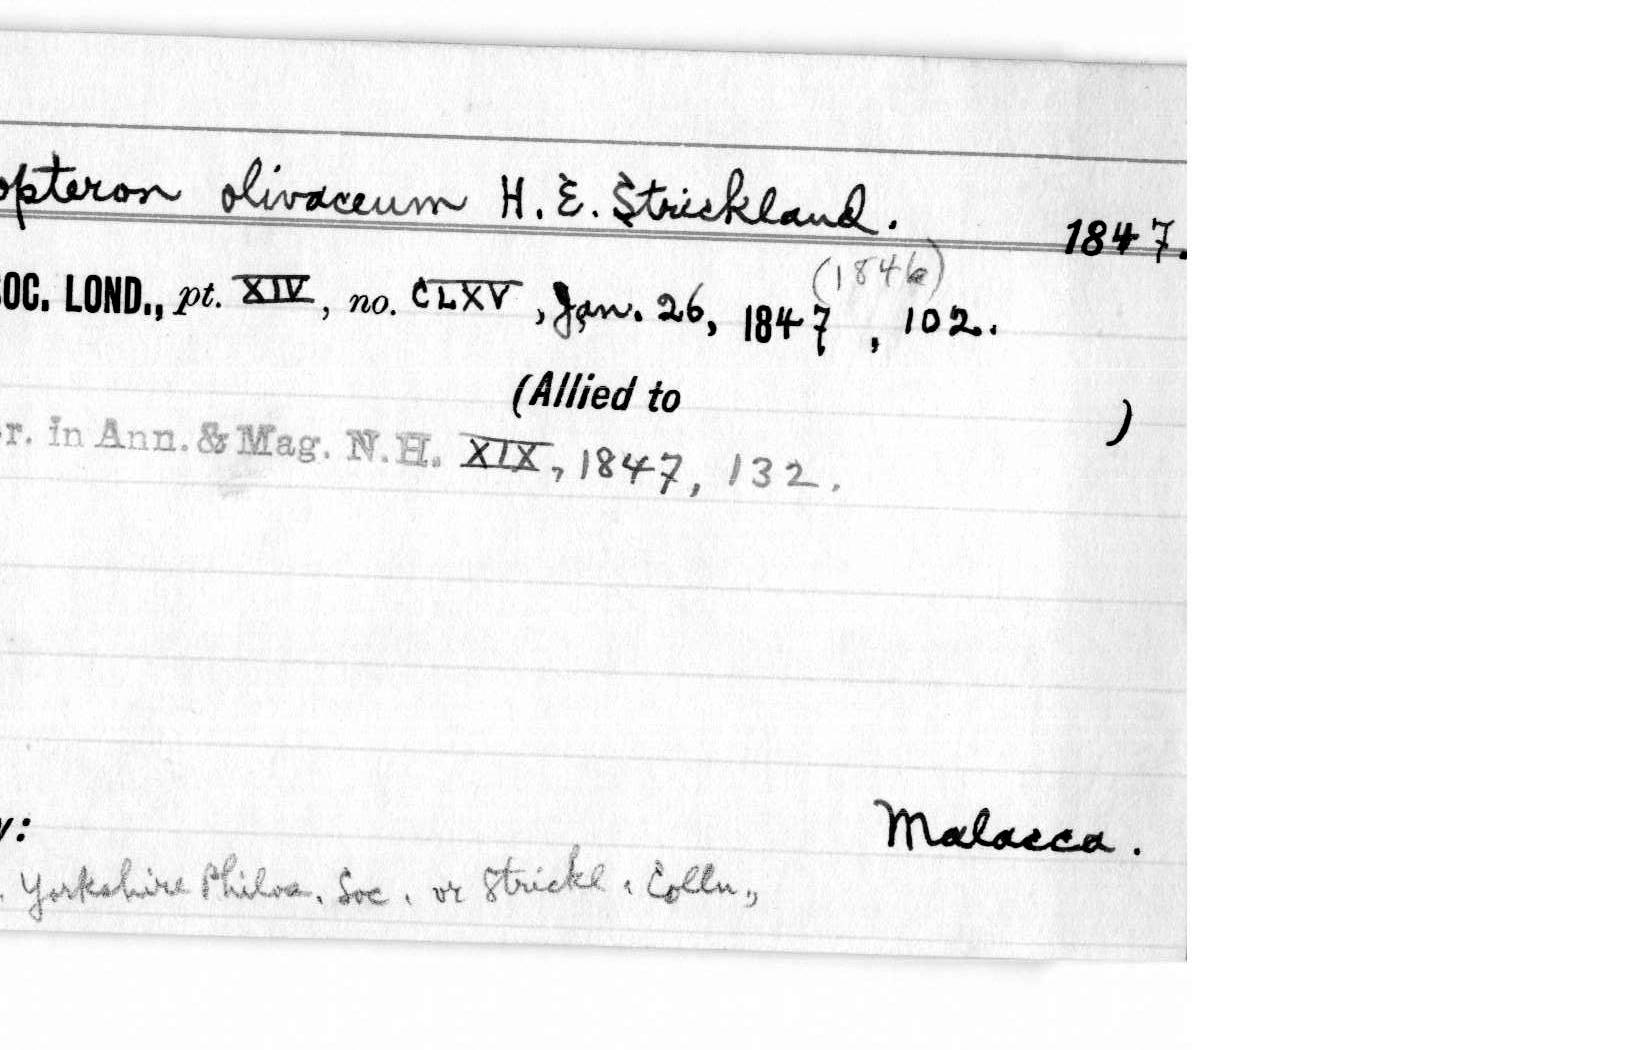 opteron olivaceum H. E. Strickland. 1847.
(1846)
OC. LOND., pt. XIV, no. CLXV, Jan. 26, 1847, 102.
(Allied to )
r. in Ann. & Mag. N.H. XIX, 1847, 132.
y: Malacca.
. Yorkshire Philos. Soc. or Strickl. Colln.,